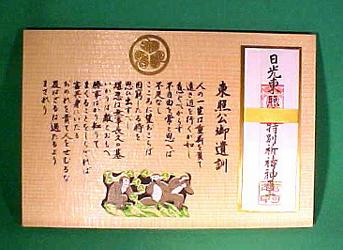 日光東照宮特別祈祷神
東照公御遺訓
人の一生は重荷を負て
遠き道を行くが如し
急ぐべからず
不自由を常と思へば
不足なし
こころに望おこらば
困窮したる時を
思ひ出すべし
堪忍は無事長久の基
いかりは敵とおもへ
勝事ばかり知りて
まくることをしらざれば
害其身にいたる
おのれを責て人をせむるな
及ばざるは過たるより
まされり